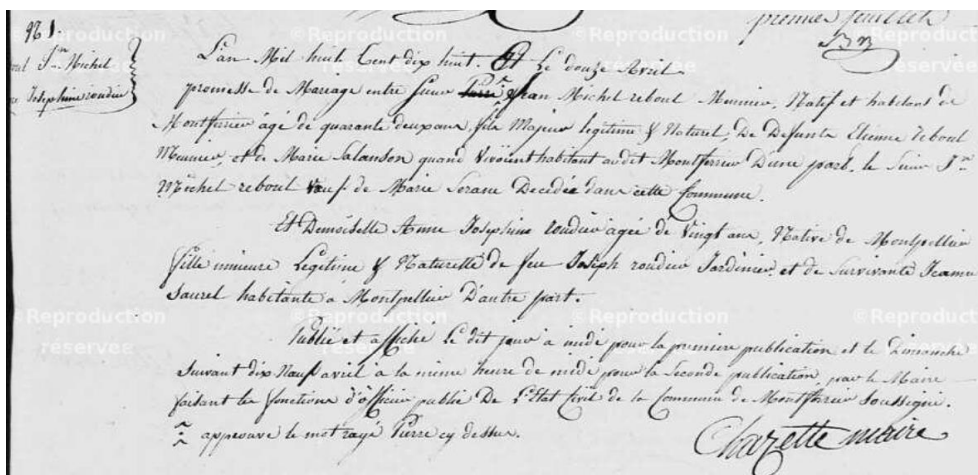 premier feuillet
Jn Michel
Josephine roudier
L'an Mil huit Cent dix huit. Et Le douze Avril
promesse de Mariage entre Sieur Pierre Jean Michel reboul Meunier, Natif et habitant de
Montferrier âgé de quarante deux ans, fils Majeur legitime & Naturel, De Defunts Etienne reboul
Meunier, et de Marie Salanson quand vivoient habitant audit Montferrier D'une part. le Sieur Jn
Michel reboul Veuf de Marie Serane Decedée dans cette Commune.
Et Demoiselle Anne Josephine roudier agée de Vingt ans, Native de Montpellier
fille mineure Legitime & Naturelle de feu Joseph roudier Jardinier, et de Survivante Jeanne
Saurel habitante a Montpellier D'autre part.
Publié et affiché Le dit jour a midi pour la premiere publication et le Dimanche
Suivant dix Neuf avril a la même heure de midi pour la Seconde publication, par le Maire
faisant les fonctions d'officier public De L'Etat Civil de la Commune de Montferrier Soussigné.
approuvé le mot rayé Pierre cy dessus.
Chazette maire
©Reproduction
réservée
©Reproduction
réservée
©Reproduction
réservée
©Reproduction
réservée